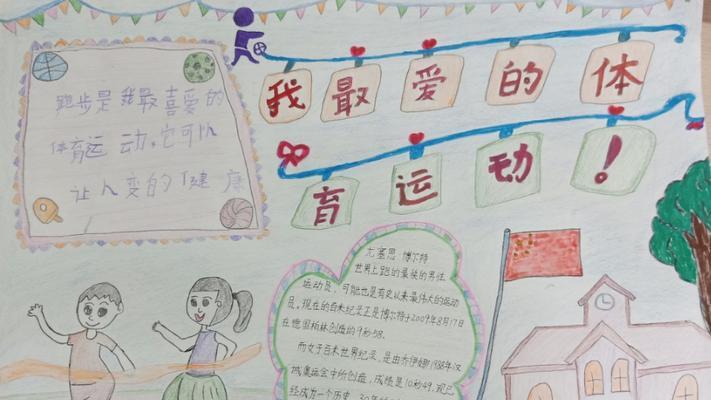 我最爱的体
育运动！
跑步是我最喜爱的
体育运动。它可以
让人变的健康
尤塞恩 博尔特
世界上跑的最快的男性
运动员，可能也是有史以来最伟大的运动
员。现在的百米纪录正是博尔特于2009年8月17日
在德国柏林创造的9秒58。
而女子百米世界纪录，是由乔伊娜1988年汉
城奥运会中所创造，成绩是10秒49，现已
经成为一个历史